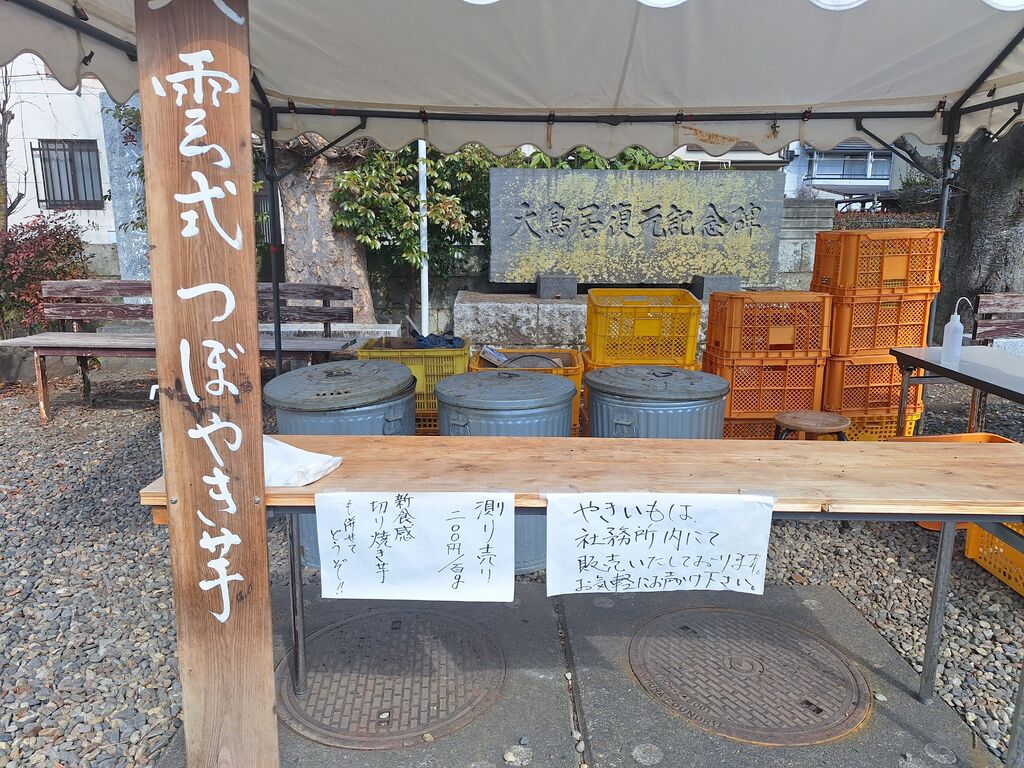 雲式 つぼやき芋
大鳥居復元記念碑
測り売り
二〇〇円/百g
新食感
切り焼き芋
も併せて
どうぞ!!
やきいもは、
社務所内にて
販売いたしております。
お気軽にお声かけ下さい。